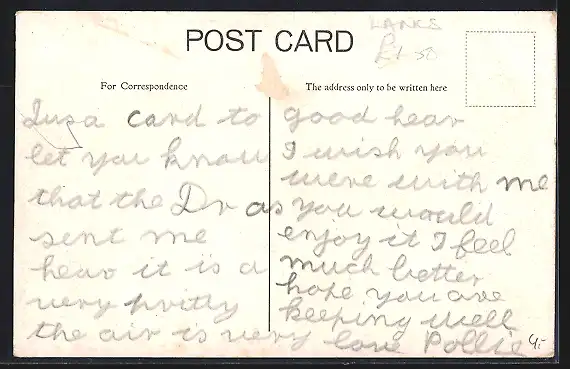 LANKS
£1-50
POST CARD
For Correspondence
The address only to be written here
Jusa card to
let you know
that the Dr as
sent me
hear it is a
very pritty
the air is very
good hear
I wish you
were with me
as you would
enjoy it I feel
much better
hope you are
keeping well
love Pollie
4-